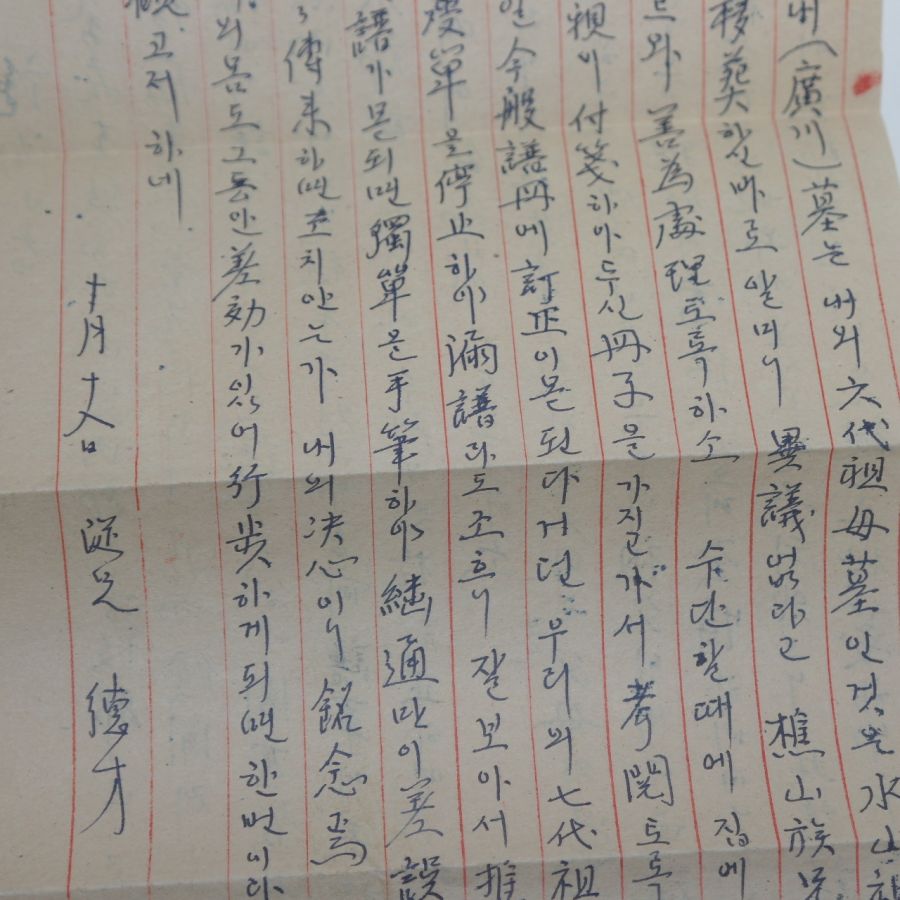 내(廣川)墓는 내의 六代祖母墓인 것은 水山
移葬하신 바로 알며니 異議없다고 樵山族兄
와 善為處理토록 하소 수단할때에 집에
이 付箋하아두신 冊子을 가질가서 考閱토록
今般譜冊에 訂正이 몯된다거던 우리의 七代祖
單을 停止하야 漏譜라도 조흐니 잘보아서 推
譜가 몯되면 獨單을 手筆하야 繼通만이 差誤
傳來하면 조치안는가 내의 决心이니 銘念焉
의 몸도 그동안 差効가 있어 行步하게 되면 한번이다
고저하네
十月 十八日 從兄 德才